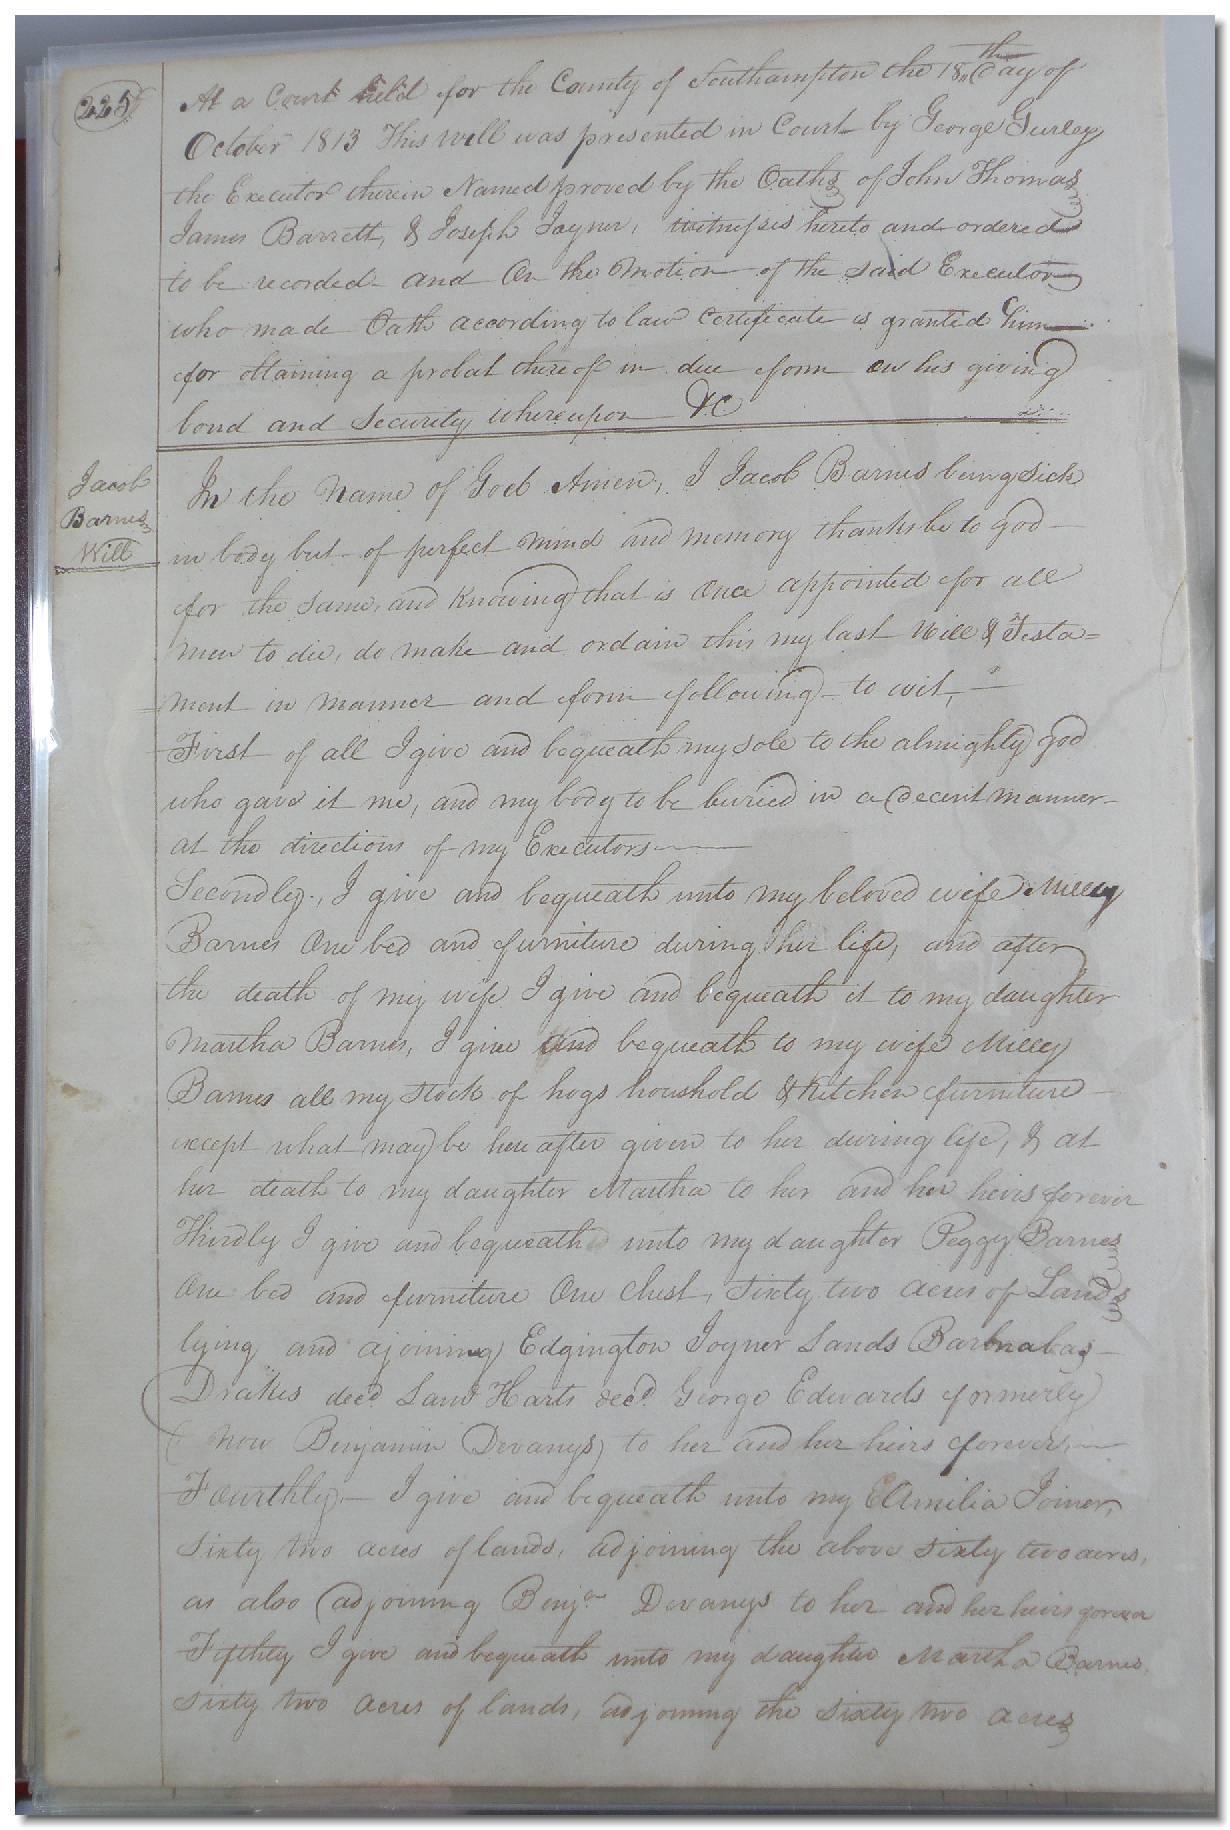 225
At a Court held for the County of Southampton the 18th day of
October 1813 This will was presented in Court by George Gurley
the Executor therein Named proved by the Oaths of John Thomas
James Barrett, & Joseph Joyner, witnesses hereto and ordered
to be recorded and On the Motion of the said Executor
who made Oath according to law Certificate is granted him
for obtaining a probat thereof in due form on his giving
bond and Security whereupon &C
Jacob
Barnes
Will
In the Name of God Amen, I Jacob Barnes being Sick
in body but of perfect mind and memory thanks be to god
for the same, and Knowing that is Once appointed for all
men to die, do make and ordain this my last Will & Testa=
ment in manner and form following to wit,
First of all I give and bequeath my sole to the almighty god
who gave it me, and my body to be buried in a decent manner
at the directions of my Executors
Secondly, I give and bequeath unto my beloved wife Milley
Barnes One bed and furniture during her life, and after
the death of my wife I give and bequeath it to my daughter
Martha Barnes, I give and bequeath to my wife Milley
Barnes all my stock of hogs houshold & Kitchen furniture
except what may be here after given to her during life, & at
her death to my daughter Martha to her and her heirs forever
Thirdly I give and bequeath unto my daughter Peggy Barnes
One bed and furniture One Chest, Sixty two acres of Lands
lying and ajoining Edgington Joyner Lands Barnabas
Drakes decd Land Harts decd. George Edwards formerly
(now Benjamin Devanys) to her and her heirs forever,
Fourthly I give and bequeath unto my Eamilia Joiner,
Sixty two acres of lands, adjoining the above sixty two acres,
as also adjoining Benjn Devanys to her and her heirs forever
Fifthly I give and bequeath unto my daughter Martha Barnes
Sixty two acres of lands, adjoining the sixty two acres